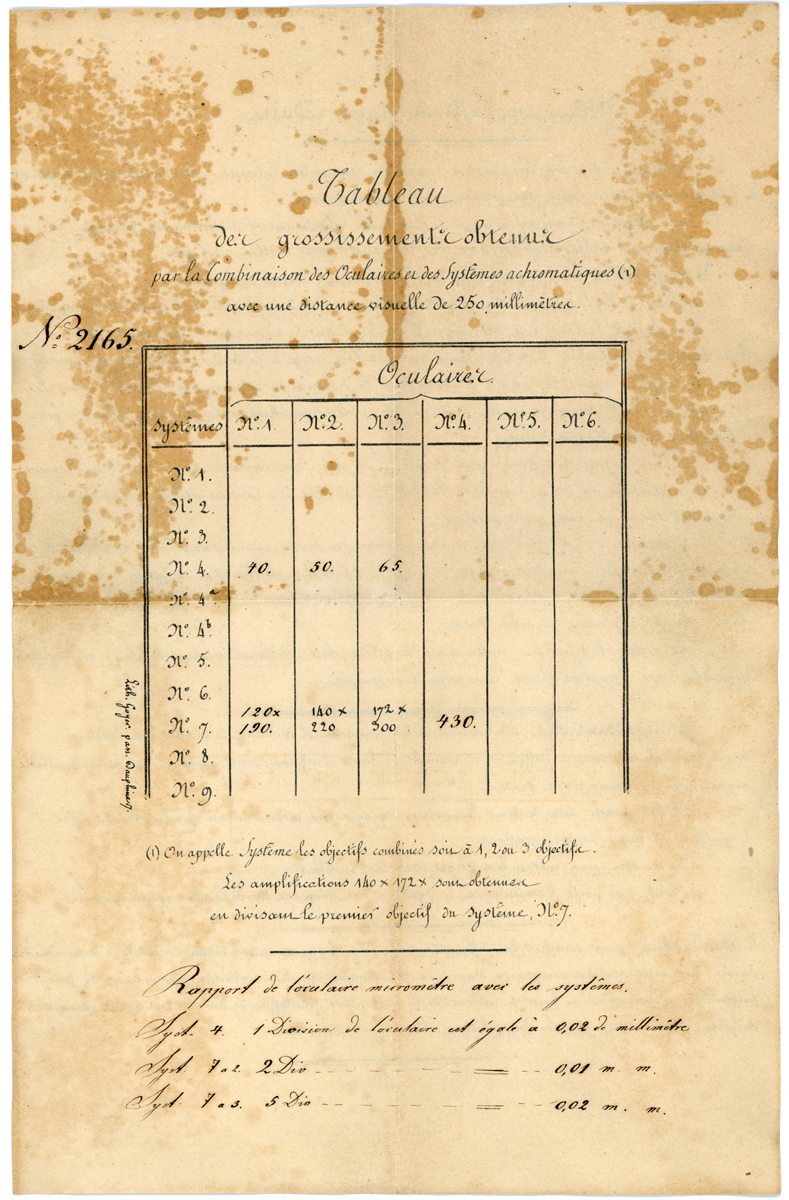 Tableau
des grossissements obtenus
par la Combinaison des Oculaires et des Systèmes achromatiques (1)
avec une distance visuelle de 250 millimètres.
No. 2165.
Oculaires.
Systêmes No. 1. No. 2. No. 3. No. 4. No. 5. No. 6.
No. 1.
No. 2.
No. 3.
No. 4. 40. 50. 65.
No. 4a.
No. 4b.
No. 5.
No. 6.
No. 7. 120x 140 x 172 x
190. 220 300 430.
No. 8.
No. 9.
Lith. Goyer pass. Dauphine 7.
(1) On appelle Système les objectifs combinés soit à 1, 2 ou 3 objectifs.
Les amplifications 140 x 172 x sont obtenues
en divisant le premier objectif du système, No. 7.
Rapport de l'oculaire micromètre avec les systêmes.
Syst. 4. 1 Division de l'oculaire est égale à 0,02 de millimètre
Syst 7 a 2. 2 Div - - - = - - 0,01 m. m.
Syst. 7 a 3. 5 Div - - - = - - 0,02 m. m.